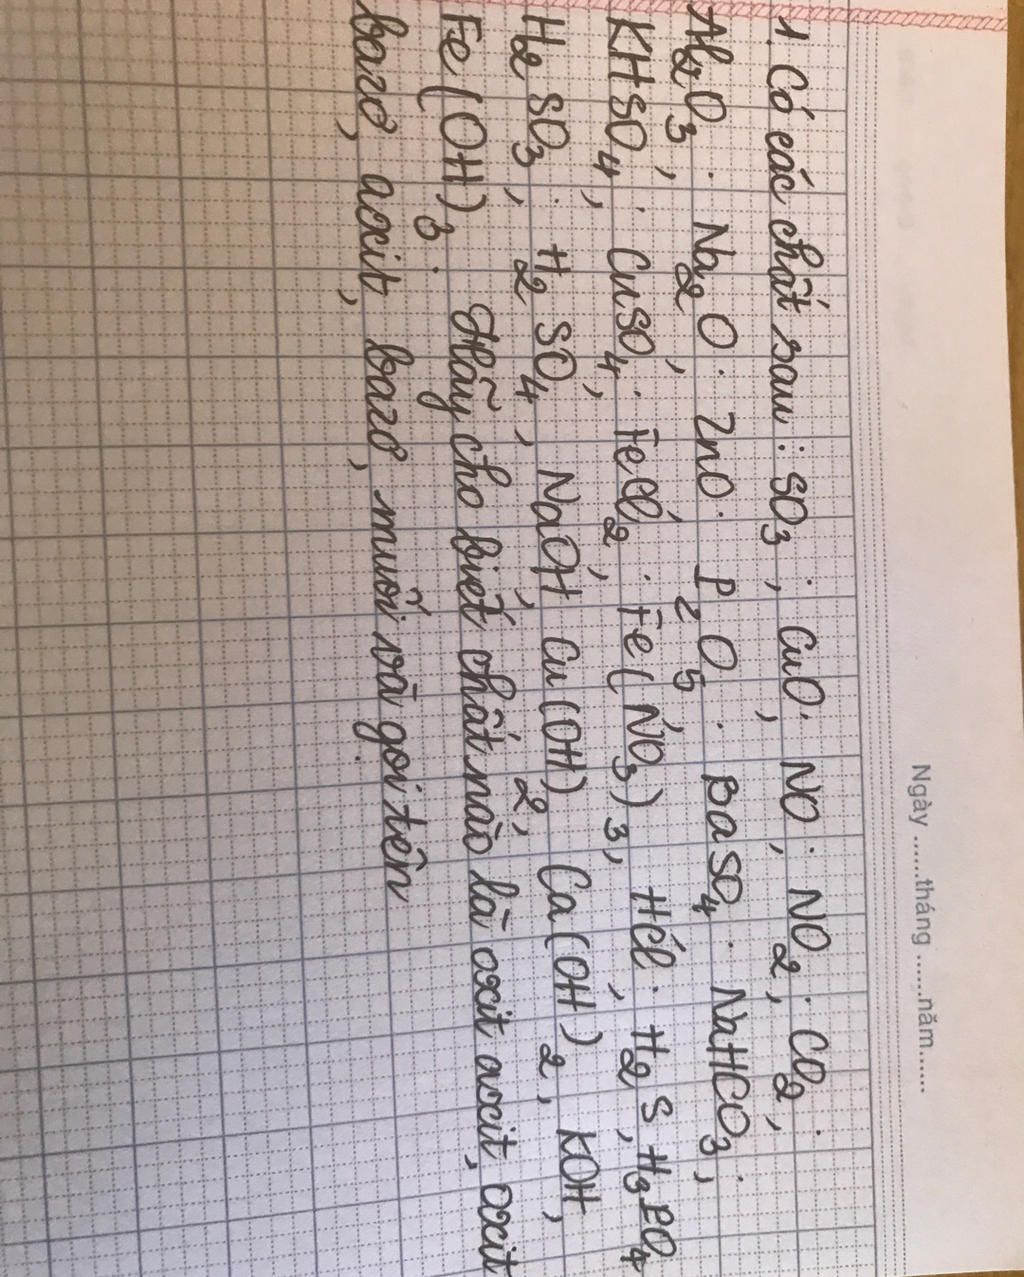 Ngày ......tháng ......năm......
1. Có các chất sau: SO3; CuO; NO; NO2; Cl2;
Al2O3; Na2O; ZnO; P2O5; BaSO4; NaHCO3;
KHSO4; CuSO4; FeCl2; Fe(NO3)3, HCl; H2S, H3PO4
H2SO3; H2SO4, NaOH, Cu(OH)2, Ca(OH)2, KOH,
Fe(OH)3. Hãy cho biết chất nào là oxit axit, oxit
bazơ, axit, bazơ, muối và gọi tên